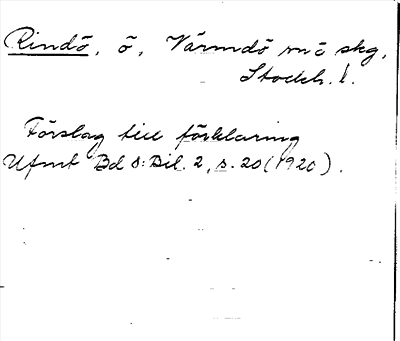 Rindö, ö, Värmdö och skg,
Stockh. l.
Förslag till förklaring
Ufmt Bd 8: Bil. 2, s. 20 (1920).